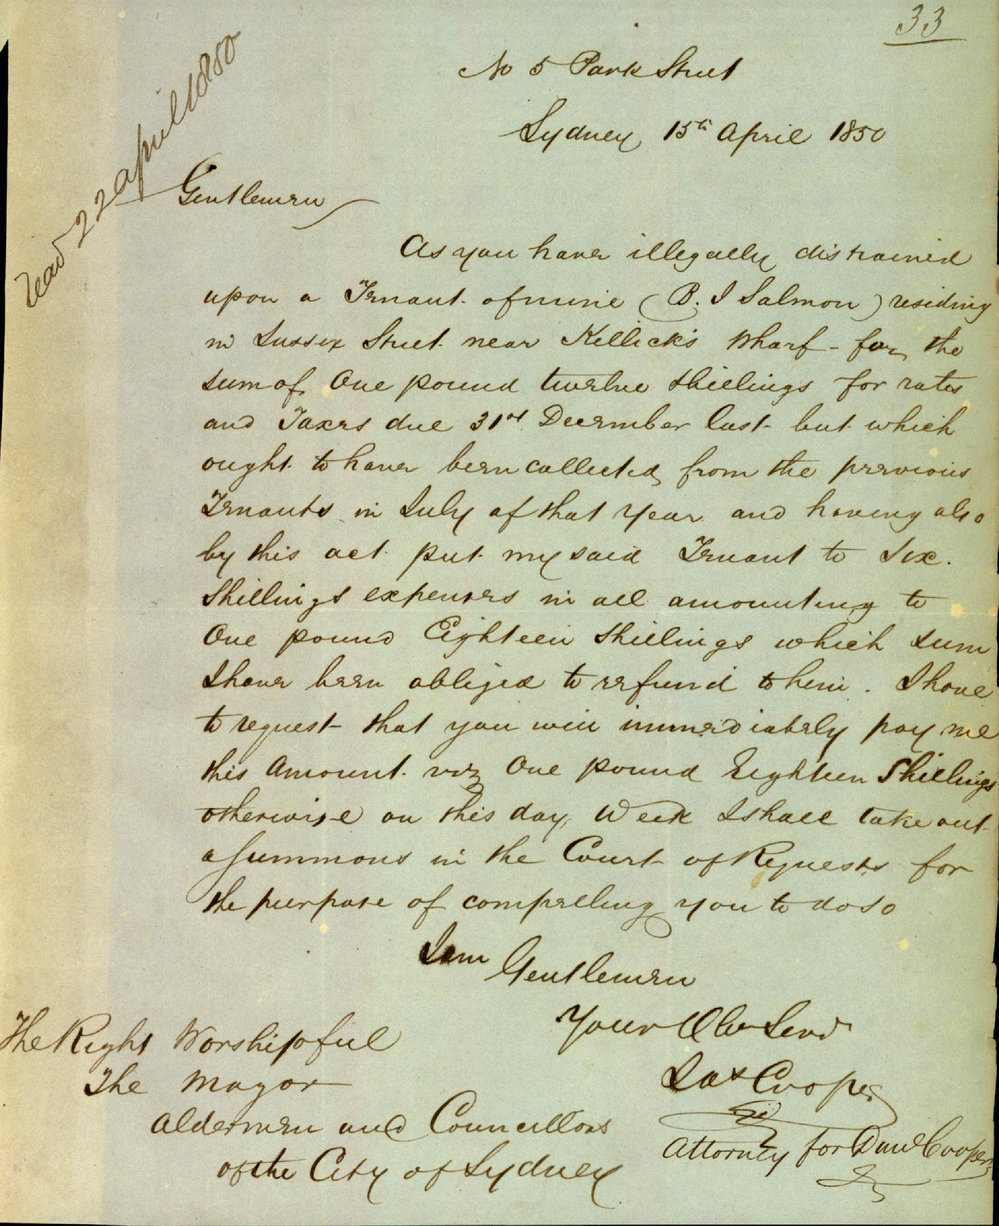 33
No 5 Park Street
Sydney 15th April 1850
read 22 april 1850
Gentlemen
As you have illegally distrained
upon a Tenant of mine (B. I Salmon) residing
in Sussex Street near Kellick's Wharf - for the
sum of One pound twelve shillings for rates
and Taxes due 31st December last but which
ought to have been collected from the previous
Tenants in July of that Year and having also
by this act put my said Tenant to Six
Shillings expenses in all amounting to
One pound Eighteen Shillings which sum
I have been obliged to refund to him. I have
to request that you will immediately pay me
this Amount viz One pound Eighteen Shillings
otherwise on this day Week I shall take out
a Summons in the Court of Requests for
the purpose of compelling you to do so
I am Gentlemen
Your Obt Servt
Jas Cooper
Attorney for Danl Cooper
The Right Worshipful
The Mayor
Aldermen and Councillors
of the City of Sydney